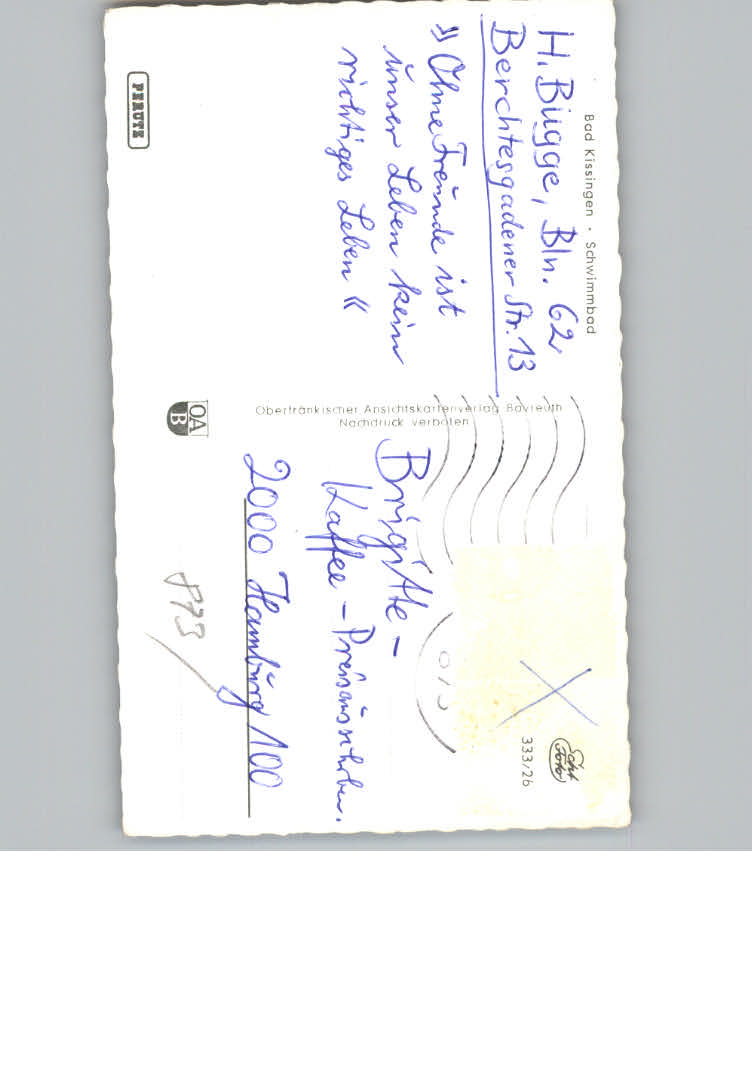 Bad Kissingen · Schwimmbad
H. Bugge, Bln. 62
Berchtesgadener Str. 13
»Ohne Freunde ist
unser Leben kein
richtiges Leben«
PERUTZ
Oberfränkischer Ansichtskartenverlag Bayreuth
Nachdruck verboten
OA
B
Echt
Foto
333/26
Brigitte -
Kaffee - Preisausschrben.
2000 Hamburg 100